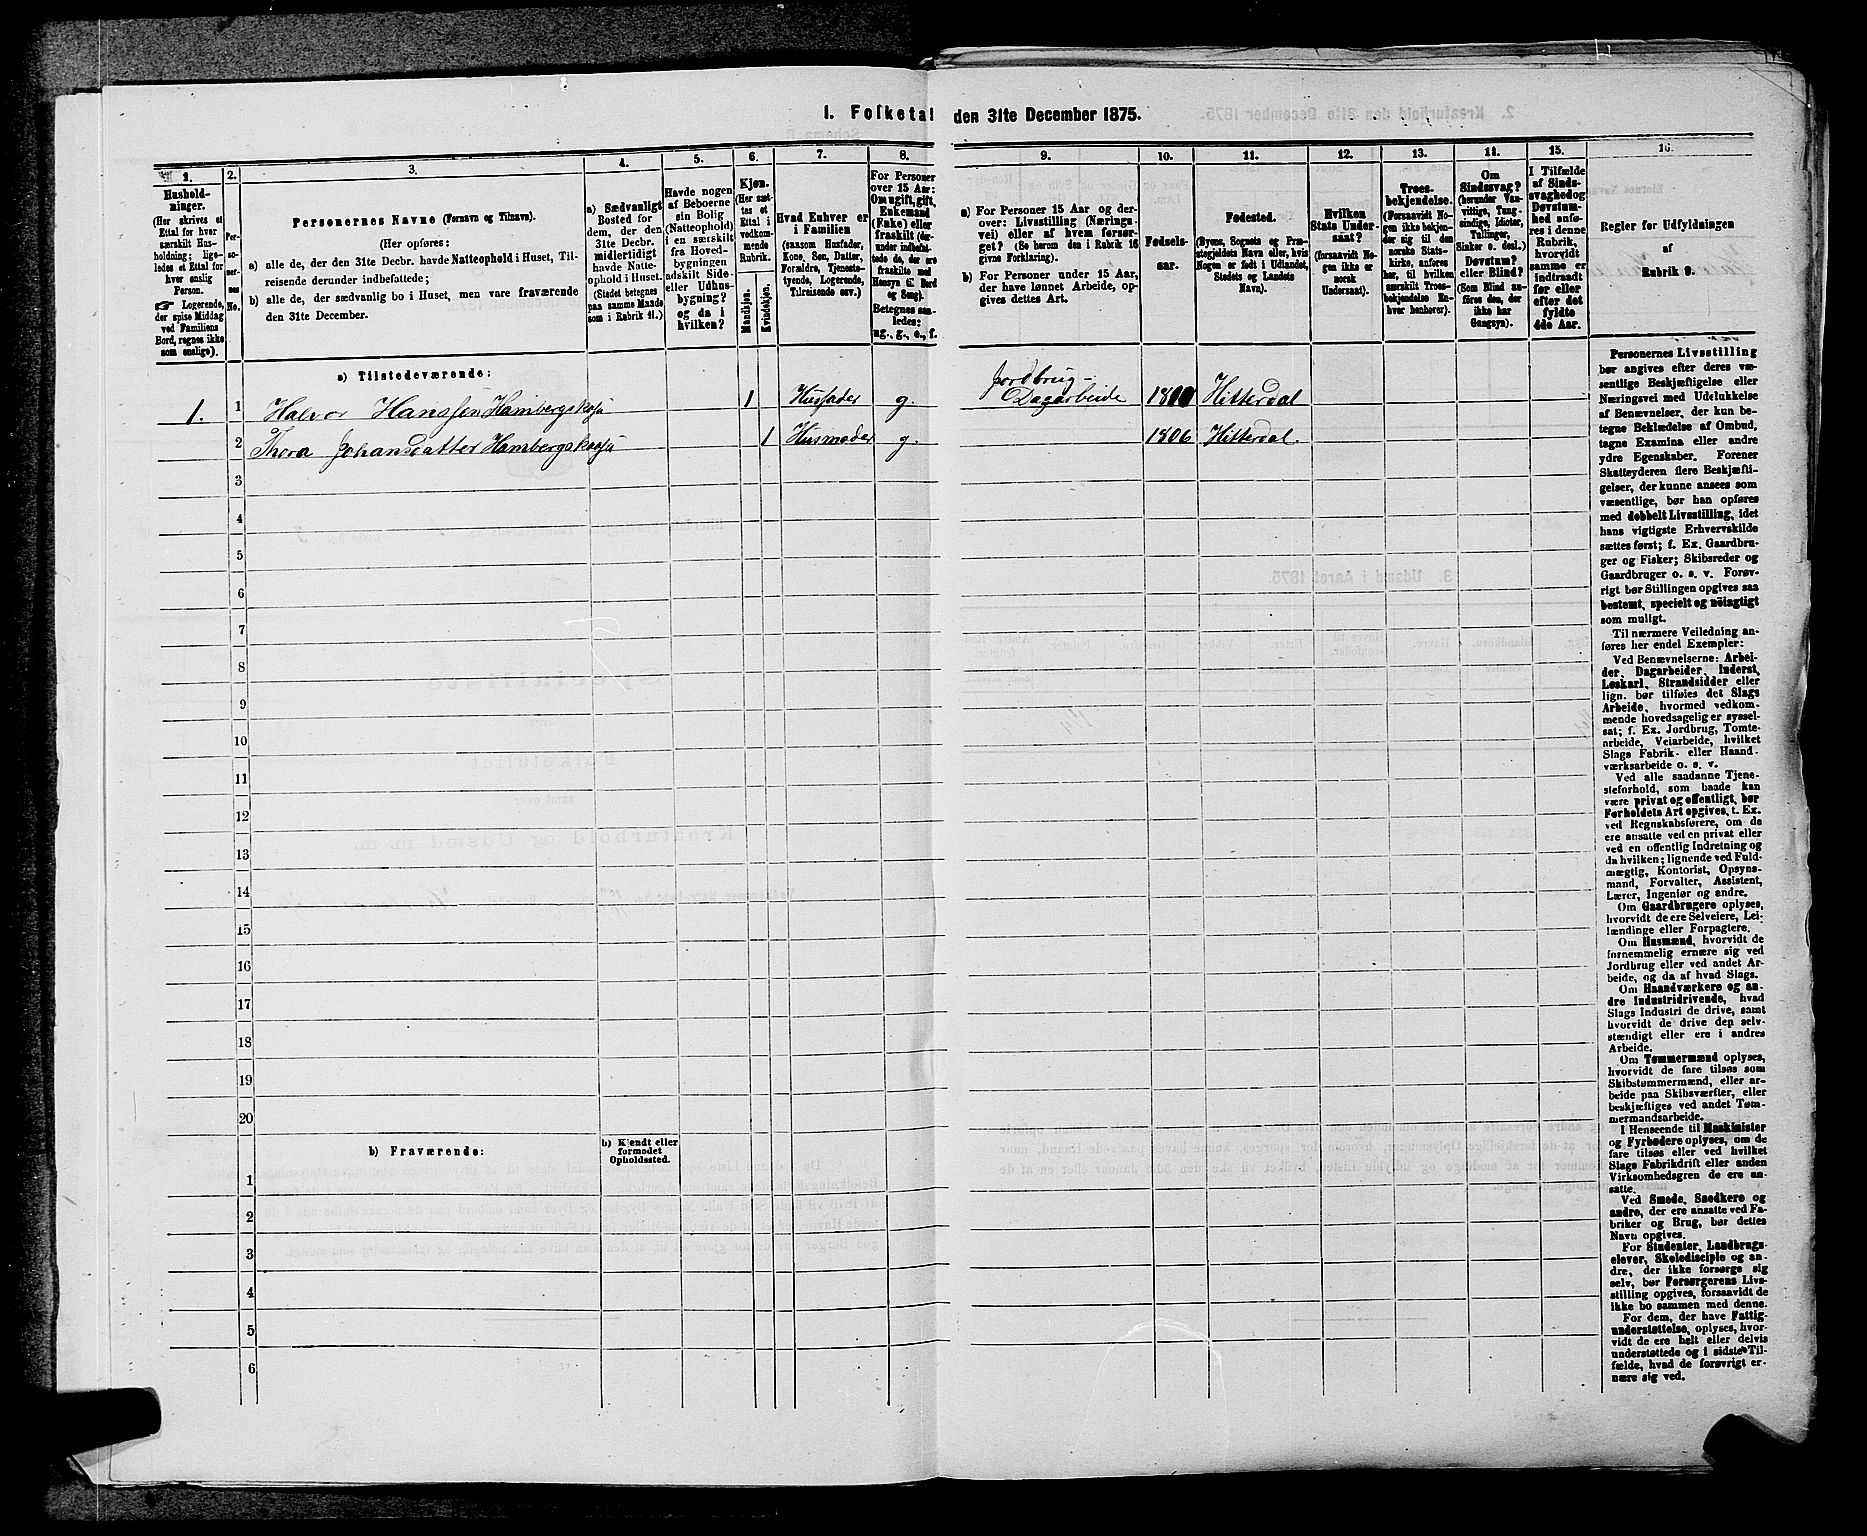 1. Folketal den 31te December 1875.
1.
Hushold-
ninger.
(Her skrives et
Ettal for hver
særskilt Hus-
holdning; lige-
ledes et Ettal for
hver enslig
Person.
☞ Logerende,
der spise Middag
ved Familiens
Bord, regnes ikke
som enslige).
2.
Per-
so-
ner-
nes
No.
3.
Personernes Navne (Fornavn og Tilnavn).
(Her opføres:
a) alle de, der den 31te Decbr. havde Natteophold i Huset, Til-
reisende derunder indbefattede;
b) alle de, der sædvanlig bo i Huset, men vare fraværende
den 31te December.
4.
a) Sædvanligt
Bosted for
dem, der den
31te Decbr.
midlertidigt
havde Natte-
ophold i Huset.
(Stedet betegnes
paa samme Maade
som i Rubrik 11.)
5.
Havde nogen
af Beboerne
sin Bolig
(Natteophold)
i en særskilt
fra Hoved-
bygningen
adskilt Side-
eller Udhus-
bygning?
og da i
hvilken?
6.
Kjøn.
(Her sæt-
tes et
Ettal i
vedkom-
mende
Rubrik.
Mandkjøn.
Kvindekjøn.
7.
Hvad Enhver er
i Familien
(saasom Husfader,
Kone, Søn, Datter,
Forældre, Tjeneste-
tyende, Logerende,
Tilreisende osv.)
8.
For Personer
over 15 Aar:
Om ugift, gift,
Enkemand
(Enke) eller
fraskilt (der-
under indbefat-
tede de, der ere
fraskilte med
Hensyn til Bord
og Seng).
Betegnes saa-
ledes:
ug., g., e., f.
9.
a) For Personer 15 Aar og der-
over: Livsstilling (Nærings-
vei) eller af hvem forsør-
get? (Se herom den i Rubrik 16
givne Forklaring).
b) For Personer under 15 Aar,
der have lønnet Arbeide, op-
gives dettes Art.
10.
Fødsels-
aar.
11.
Fødested.
(Byens, Sognets og Præ-
stegjeldets Navn eller, hvis
Nogen er født i Udlandet,
Stedets og Landets
Navn).
12.
Hvilken
Stats Under-
saat?
(forsaavidt No-
gen ikke er
norsk
Undersaat).
13.
Troes-
bekjendelse.
(Forsaavidt No-
gen ikke bekjen-
der sig til den
norske Stats-
kirke, anføres
her, til hvilken
særskilt Troes-
bekjendelse En-
hver henhører).
14.
Om
Sindssvag?
(herunder Van-
vittige, Tung-
sindige, Idioter,
Tullinger,
Sinker o. desl.)
Døvstum?
eller Blind?
(Som Blind an-
føres den, der
ikke har
Gangsyn).
15.
I Tilfælde
af Sinds-
svaghed og
Døvstum-
hed anfø-
res i denne
Rubrik,
hvorvidt
samme er
indtraadt
før eller
efter det
fyldte
4de Aar.
16.
Regler for Udfyldningen
af
Rubrik 9.
a) Tilstedeværende:
1. 1 Halvor Hanssen Hambergskaasa 1 Husfader g. Jordbrug-
Dagarbeide 1810 Hitterdal
2 Thora Johansdatter Hambergskaasa 1 Husmoder g. 1806 Hitterdal.
3
4
5
6
7
8
9
10
11
12
13
14
15
16
17
18
19
20
b) Fraværende:
b) Kjendt eller
formodet
Opholdssted.
1
2
3
4
5
6
Personernes Livsstilling
bør angives efter deres væ-
sentlige Beskjæftigelse eller
Næringsvei med Udelukkelse
af Benævnelser, der kun be-
tegne Beklædelse af Ombud,
tagne Examina eller andre
ydre Egenskaber. Forener
Skatteyderen flere Beskjæfti-
gelser, der kunne ansees som
væsentlige, bør han opføres
med dobbelt Livsstilling, idet
hans vigtigste Erhvervskilde
sættes først; f. Ex. Gaardbru-
ger og Fisker; Skibsreder og
Gaardbruger o. s. v. Forøv-
rigt bør Stillingen opgives saa
bestemt, specielt og nøiagtigt
som muligt.
Til nærmere Veiledning an-
føres her endel Exempler:
Ved Benævnelserne: Arbei-
der, Dagarbeider, Inderst,
Løskarl, Strandsidder eller
lign. bør tilføies det Slags
Arbeide, hvormed vedkom-
mende hovedsagelig er syssel-
sat; f. Ex. Jordbrug, Tomte-
arbeide, Veiarbeide, hvilket
Slags Fabrik- eller Haand-
værksarbeide o. s. v.
Ved alle saadanne Tjene-
steforhold, som baade kan
være privat og offentligt, bør
Forholdets Art opgives, t. Ex.
ved Regnskabsførere, om de
ere ansatte ved en privat eller
ved en offentlig Indretning og
da hvilken; lignende ved Fuld-
mægtig, Kontorist, Opsyns-
mand, Forvalter, Assistent,
Lærer, Ingeniør og andre.
Om Gaardbrugere oplyses,
hvorvidt de ere Selveiere, Lei-
lændinge eller Forpagtere.
Om Husmænd, hvorvidt de
fornemmelig ernære sig ved
Jordbrug eller ved andet Ar-
beide, og da af hvad Slags.
Om Haandværkere og an-
dre Industridrivende, hvad
Slags Industri de drive, samt
hvorvidt de drive den selv-
stændigt eller ere i andres
Arbeide.
Om Tømmermænd oplyses,
hvorvidt de fare tilsøs som
Skibstømmermænd, eller ar-
beide paa Skibsværfter, eller
beskjæftiges ved andet Tøm-
mermandsarbeide.
I Henseende til Maskinister
og Fyrbødere oplyses, om de
fare tilsøs eller ved hvilket
Slags Fabrikdrift eller anden
Virksomhedsgren de ere an-
satte.
Ved Smede, Snedkere og
andre, der ere ansatte ved Fa-
briker og Brug, bør dettes
Navn opgives.
For Studenter, Landbrugs-
elever, Skoledisciple og an-
dre, der ikke forsørge sig
selv, bør Forsørgerens Livs-
stilling opgives, forsaavidt de
ikke bo sammen med denne.
For dem, der have Fattig-
understøttelse, oplyses, hvor-
vidt de ere helt eller delvis
understøttede og i sidste Til-
fælde, hvad de forøvrigt er-
nære sig ved.